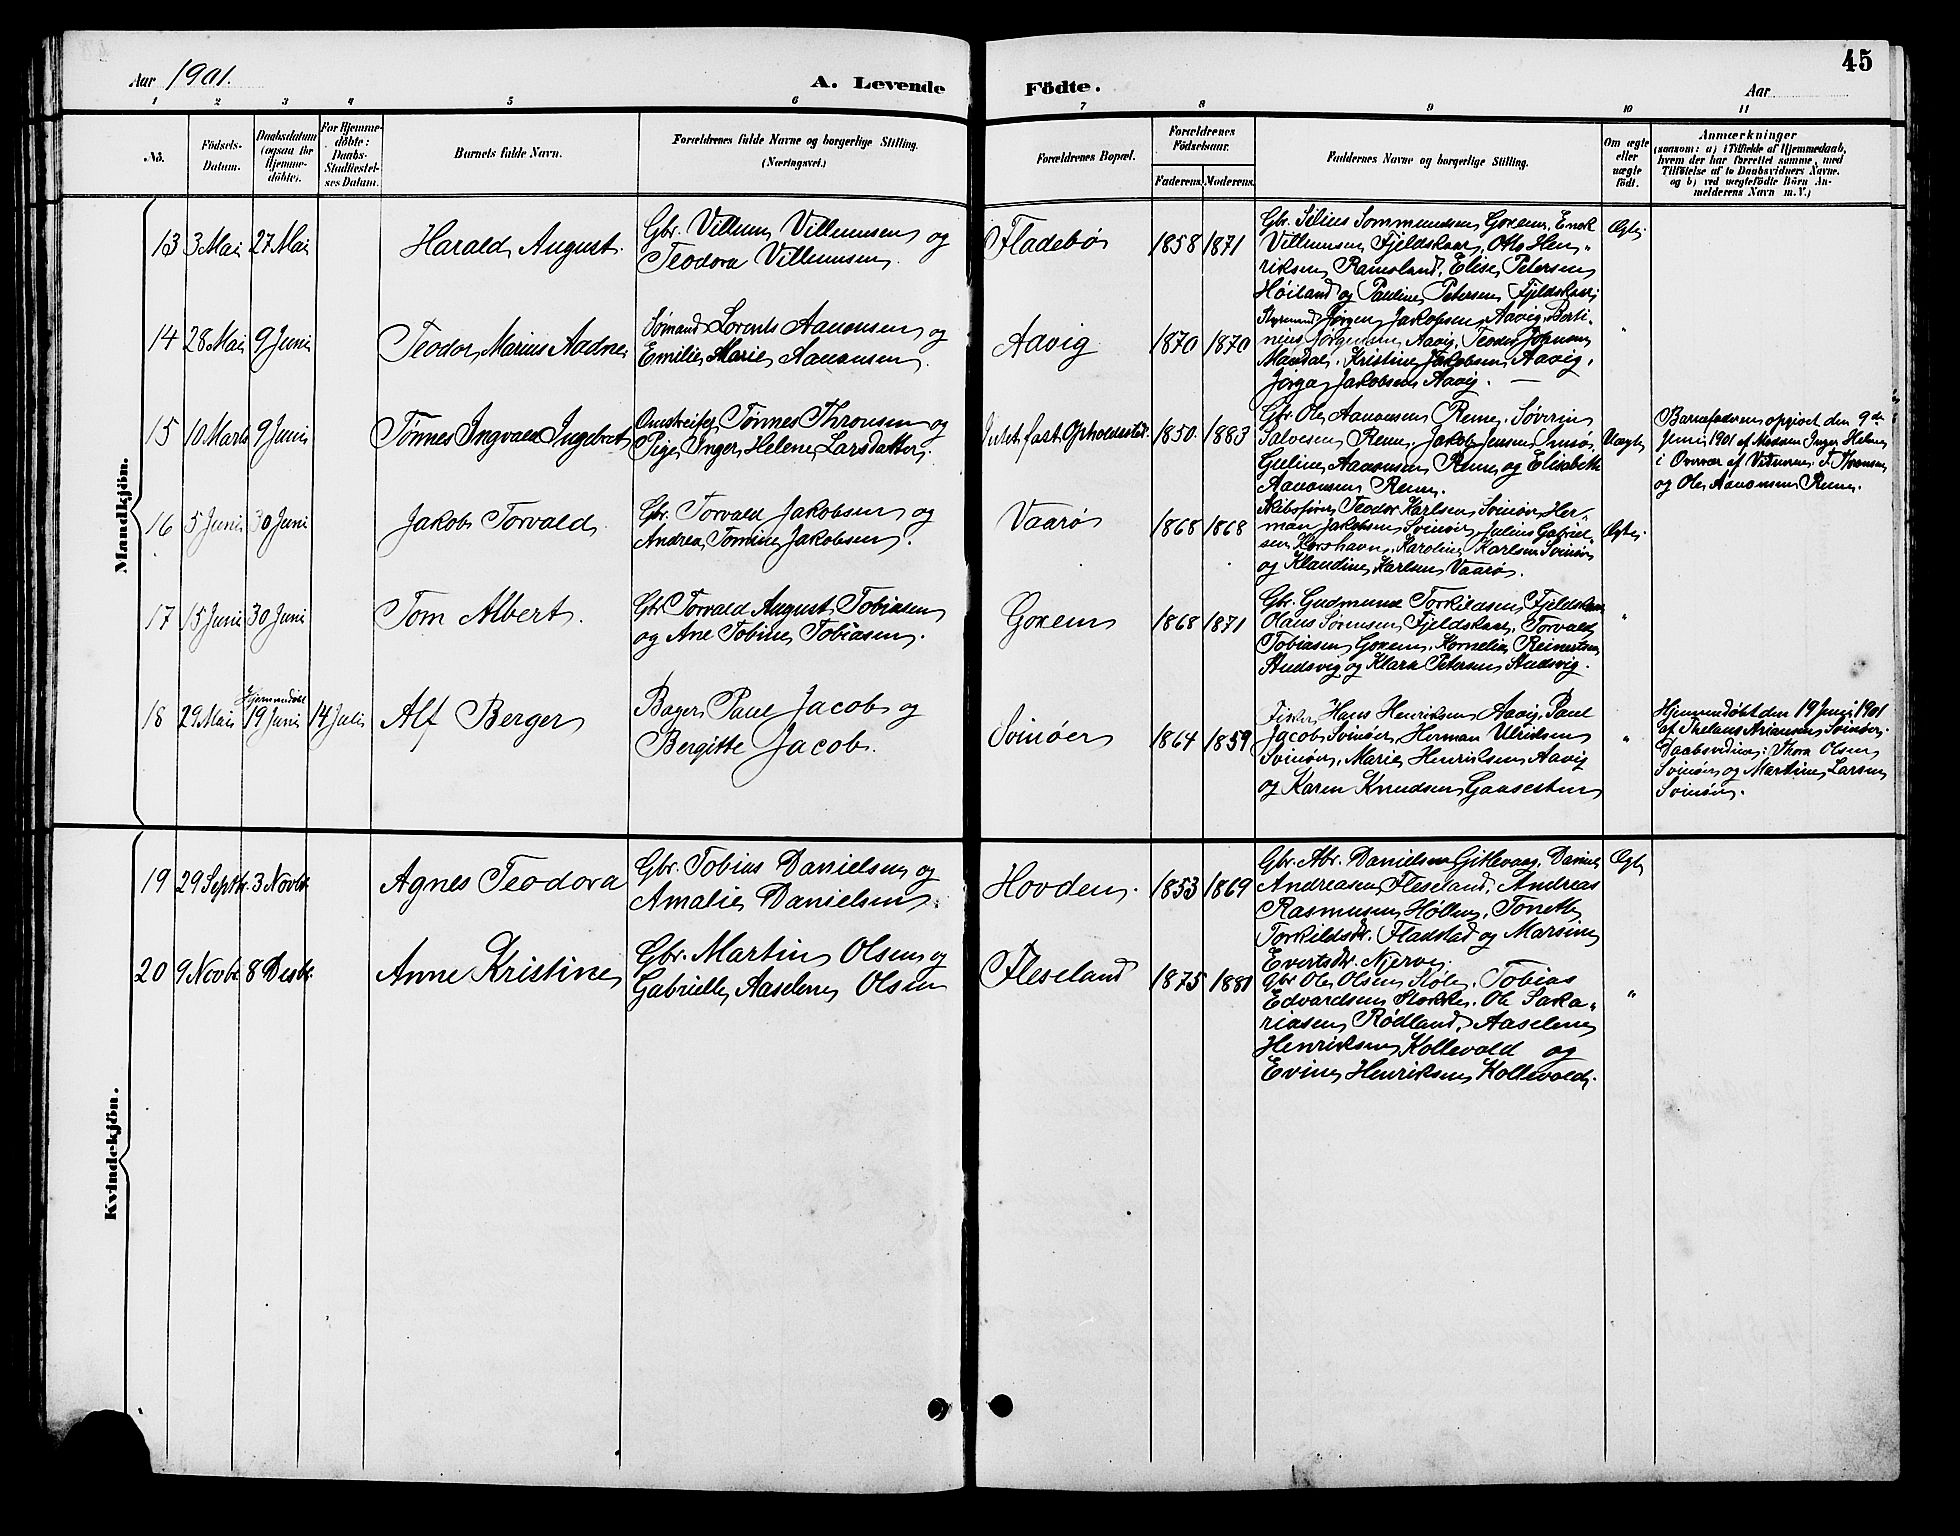 45
Aar 1901.
A. Levende Födte.
Aar
1 2 3 4 5 6 7 8 9 10 11
No.
Födsels-
Datum.
Daabsdatum
(ogsaa for
Hjemme-
döbte).
For Hjemme-
döbte:
Daabs-
Stadfæstel-
ses Datum.
Barnets fulde Navn.
Forældrenes fulde Navne og borgerlige Stilling.
(Næringsvei.)
Forældrenes Bopæl.
Forældrenes
Födselsaar.
Faderens. Moderens.
Faddernes Navne og borgerlige Stilling.
Om ægte
eller
uægte
født.
Anmærkninger
(saasom: a) i Tilfælde af Hjemmedaab,
hvem der har forrettet samme, med
Tilföielse af to Daabsvidners Navne.
og b) ved uægtefödte Börn An-
melderens Navn m. V.)
Mandkjön.
13 3 Mai 27 Mai
Harald August.
Gbr. Villum Villumsen og
Teodora Villumsen.
Fladebø
1858 1871
Gbr. Silius Sommundsen Goxem, Enok
Villumsen Fjeldskaar, Otto Hen-
riksen Ramsland, Elise Petersen
Høiland og Pauline Petersen Fjeldskaar
Ægte
14 28 Mai 9 Juni
Teodor Marius Aadne
Sømand Lorents Aanonsen og
Emilie Marie Aanonsen.
Aavig
1870 1870
Styrmand Jørgen Jakobsen Aavig, Berti-
nius Jørgensen Aavig, Teodor Johnsen
Mandal, Kristine Jakobsen Aavig,
Jørga Jakobsen Aavig. —
"
15 10 Marts 9 Juni
Tønnes Ingvald Ingebret
Omstreifer Tønnes Thronsen og
Pige Inger Helene Larsdatter.
Intet fast Opholdssted.
1850. 1883
Gbr. Ole Aanonsen Renne, Søvrin
Salvesen Renne, Jakob Jensen
Guline Aanonsen Renne og Elisabeth
Aanonsen Renne.
Uægte
Barnefaderen opgivet den 9de
Juni 1901 af Moderen Inger Helene
i Overvær af Vidnerne T. Thronsen
og Ole Aanonsen Renne.
16 5 Juni 30 Juni
Jakob Torvald
Gbr. Torvald Jakobsen og
Andrea Tomine Jakobsen.
Vaarø
1868 1868
Skibsfører Teodor Karlsen Svinør, Her-
man Jakobsen Svinør, Julius Gabriel-
sen Korshavn, Karoline Karlsen Svinør
og Klaudine Karlsen Vaarø.
Ægte
17 15 Juni 30 Juni
Tom Albert.
Gbr Torvald August Tobiasen
og Ane Tobine Tobiasen.
Goxem
1868 1871
Gbr. Gudmund Torkildsen Fjeldskaar
Olaus Sørensen Fjeldskaar, Torvald
Tobiasen Goxem, Kornelia Reinertsen
Studsvig og Klara Petersen Studsvig.
"
18 29 Mai
Hjemmedøbt
19 Juni 14 Juli
Alf Berger
Bager Paul Jacobs og
Bergitte Jacobs.
Svinøer
1864 1859
Fisker Hans Henriksen Aavig, Paul
Jacobs Svinør, Herman Ulriksen
Svinør, Marie Henriksen Aavig
og Karen Knudsen Gaasesten
"
Hjemmedøbt den 19 Juni 1901
af Svinør.
Daabsvidner: Thora Olsen
Svinør og Martine Larsen
Svinør.
Kvindekjön.
19 29 Septbr. 3 Novbr
Agnes Teodora
Gbr. Tobias Danielsen og
Amalie Danielsen.
Hovden.
1853 1869
Gbr. Abr. Danielsen Gitlevaag, Daniel
Andreasen Fleseland, Andreas
Rasmusen Høllen, Tonette
Torkildsdr. Fladstad og Marsine
Evertsdr. Njerve.
Ægte
20 9 Novbr 8 Desbr.
Anne Kristine
Gbr. Martin Olsen og
Gabrielle Aaselene Olsen
Fleseland
1875 1881
Gbr Ole Olsen Støle, Tobias
Edvardsen Stokke, Ole Saka-
riasen Rødland, Aaselene
Henriksen Kollevold og
Evine Henriksen Kollevold.
"